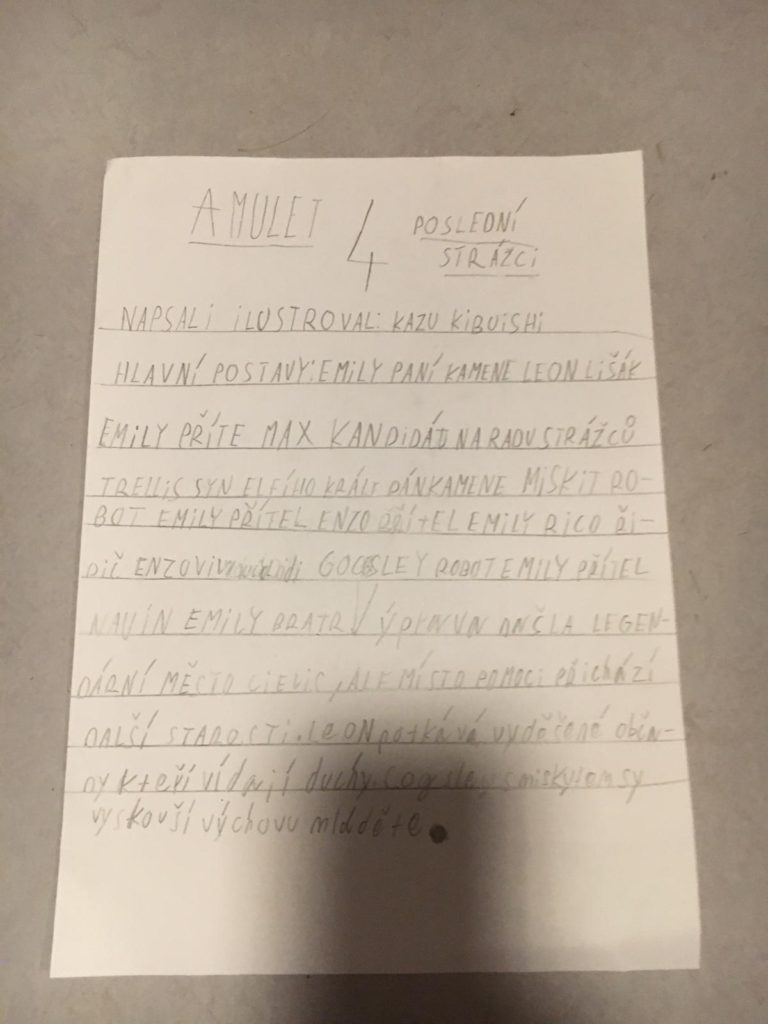 AMULET 4 POSLEDNÍ
STRÁŽCI
NAPSAL i ILUSTROVAL: KAZU KIBUISHI
HLAVNÍ POSTAVY: EMILY PANÍ KAMENE LEON LIŠÁK
EMILY PŘÍTE MAX KANDIDÁT NA RADU STRÁŽCŮ
TRELLIS SYN ELFÍHO KRÁLE PÁN KAMENE MISKIT RO-
BOT EMILY PŘÍTEL ENZO PŘÍTEL EMILY RICO ŘI-
DIČ ENZOVI COGSLEY ROBOT EMILY PŘÍTEL
NAVIN EMILY BRATR Výprava DOŠLA LEGEN-
DÁRNÍ MĚSTO CIELIS, ALE MÍSTO POMOCI PŘICHÁZÍ
DALŠÍ STAROSTI. LEON potkává vyděšené obča-
ny kteří vídají duchy. Cogsley s miskytem sy
vyskouší výchovu mláděte.